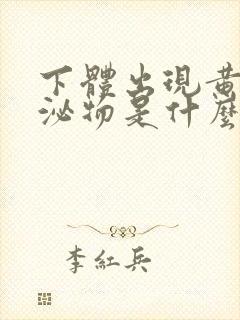 下體出現黃
泌物是什麼
李紅兵